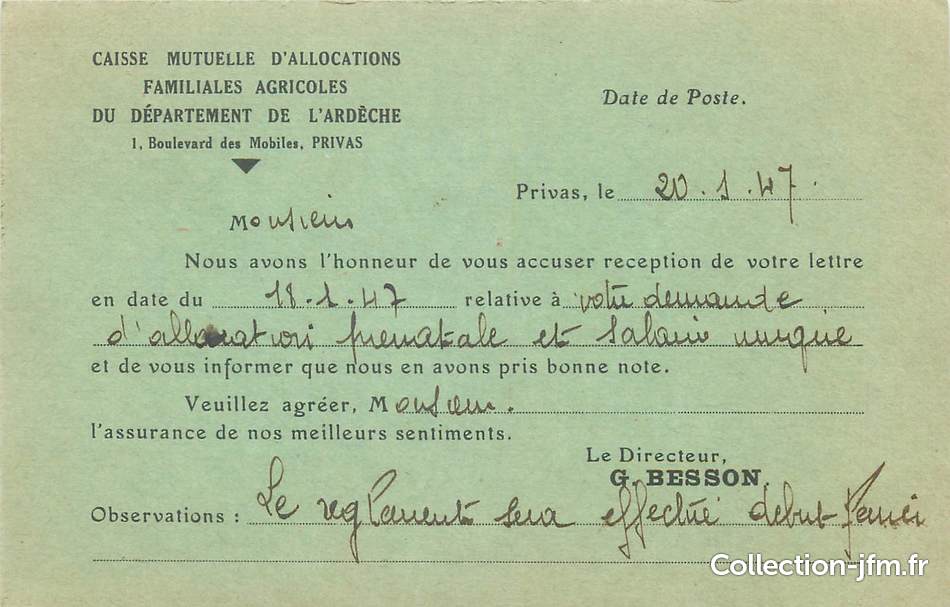 CAISSE MUTUELLE D'ALLOCATIONS
FAMILIALES AGRICOLES
DU DÉPARTEMENT DE L'ARDÈCHE
1, Boulevard des Mobiles, PRIVAS
Date de Poste.
Privas, le 20.1.47.
Monsieur
Nous avons l'honneur de vous accuser reception de votre lettre
en date du 18.1.47 relative à votre demande
d'allocation prenatale et salaire unique
et de vous informer que nous en avons pris bonne note.
Veuillez agréer, Monsieur.
l'assurance de nos meilleurs sentiments.
Le Directeur,
G. BESSON.
Observations : Le reglement sera effectué debut
Collection-jfm.fr